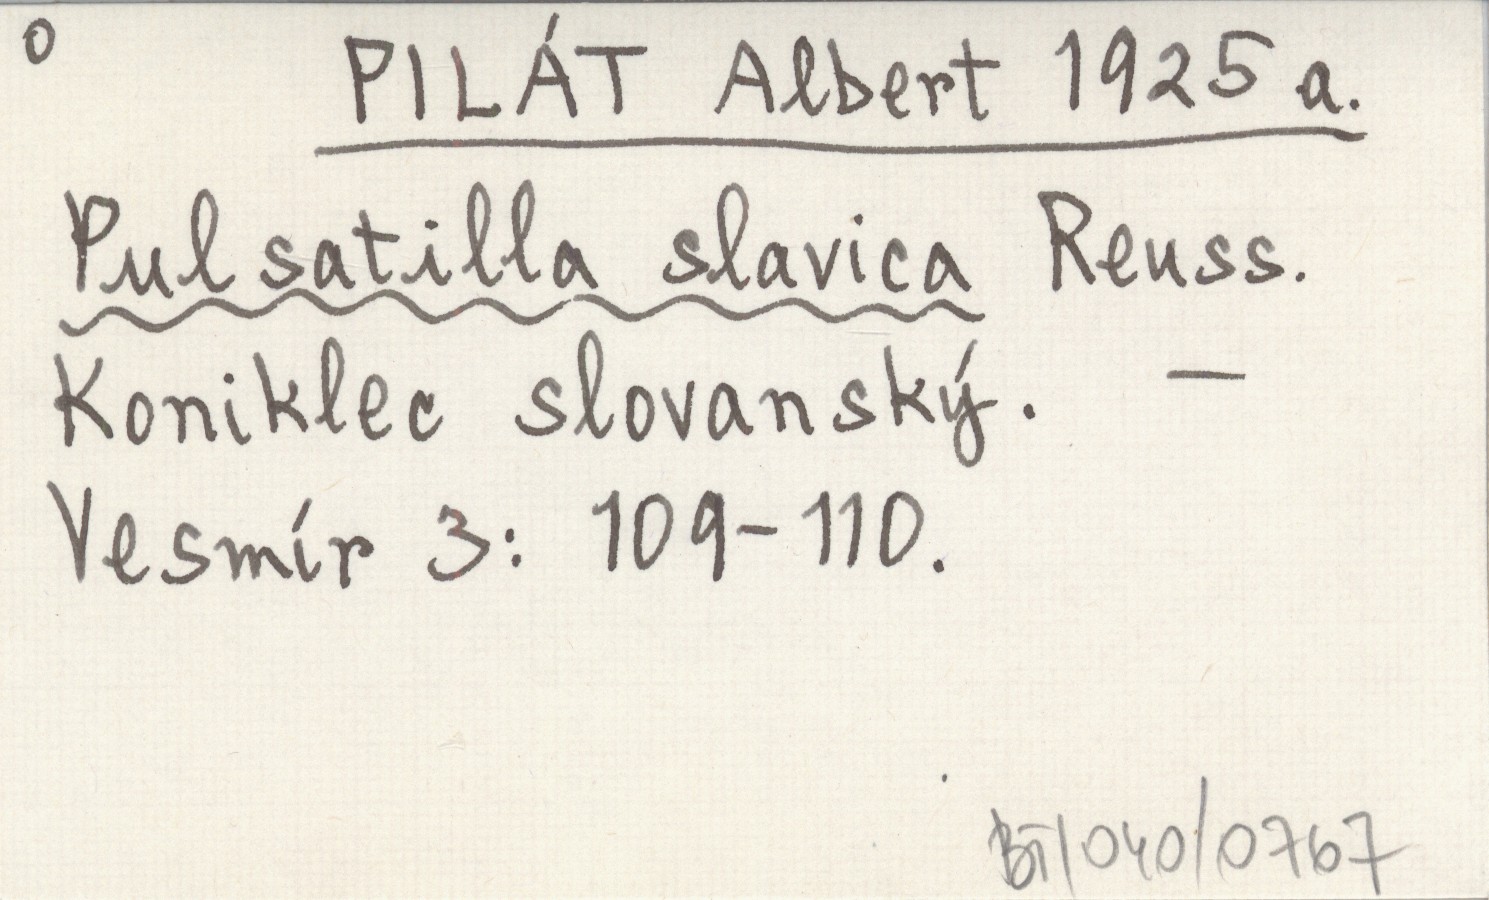 o
PILÁT Albert 1925 a.
Pulsatilla slavica Reuss. —
Koniklec slovanský.
Vesmír 3: 109-110.
BI/040/0767